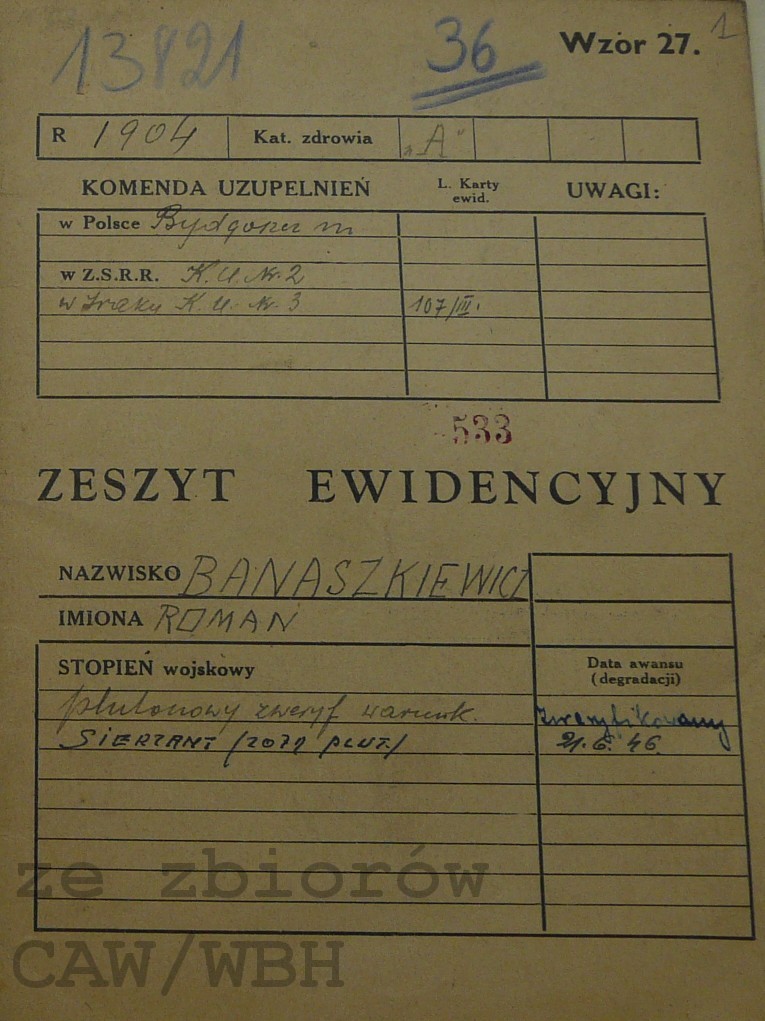 13821 36 Wzór 27. 1
R 1904 Kat. zdrowia „A”
KOMENDA UZUPEŁNIEŃ L. Karty ewid. UWAGI:
w Polsce m
w Z.S.R.R. K.U. Nr. 2
w Iraku K.U. Nr. 3 107/III.
533
ZESZYT EWIDENCYJNY
NAZWISKO BANASZKIEWICZ
IMIONA ROMAN
STOPIEŃ wojskowy Data awansu (degradacji)
plutonowy zweryf warunk. zweryfikowany
SIERŻANT ( PLUT/ 21.6.46.
ze zbiorów
CAW/WBH